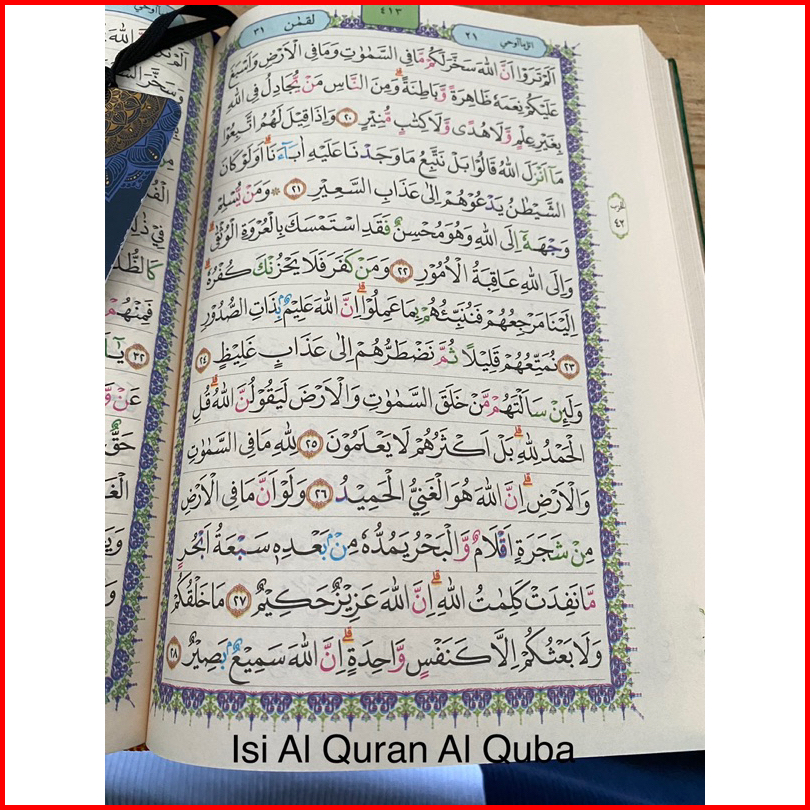 اتل مآاوحي ٢١
٤١٣
لقمٰن ٣١
اَلَمْ تَرَوْا اَنَّ اللّٰهَ سَخَّرَ لَكُمْ مَّا فِى السَّمٰوٰتِ وَمَا فِى الْاَرْضِ وَاَسْبَغَ
عَلَيْكُمْ نِعَمَهٗ ظَاهِرَةً وَّبَاطِنَةً ۗ وَمِنَ النَّاسِ مَنْ يُّجَادِلُ فِى اللّٰهِ
بِغَيْرِ عِلْمٍ وَّلَا هُدًى وَّلَا كِتٰبٍ مُّنِيْرٍ ٢٠ وَاِذَا قِيْلَ لَهُمُ اتَّبِعُوْا
مَآ اَنْزَلَ اللّٰهُ قَالُوْا بَلْ نَتَّبِعُ مَا وَجَدْنَا عَلَيْهِ اٰبَآءَنَا ۗ اَوَلَوْ كَانَ
الشَّيْطٰنُ يَدْعُوْهُمْ اِلٰى عَذَابِ السَّعِيْرِ ٢١ ۞ وَمَنْ يُّسْلِمْ
وَجْهَهٗٓ اِلَى اللّٰهِ وَهُوَ مُحْسِنٌ فَقَدِ اسْتَمْسَكَ بِالْعُرْوَةِ الْوُثْقٰى ۗ
وَاِلَى اللّٰهِ عَاقِبَةُ الْاُمُوْرِ ٢٢ وَمَنْ كَفَرَ فَلَا يَحْزُنْكَ كُفْرُهٗ ۗ
اِلَيْنَا مَرْجِعُهُمْ فَنُنَبِّئُهُمْ بِمَا عَمِلُوْا ۗ اِنَّ اللّٰهَ عَلِيْمٌۢ بِذَاتِ الصُّدُوْرِ
٢٣ نُمَتِّعُهُمْ قَلِيْلًا ثُمَّ نَضْطَرُّهُمْ اِلٰى عَذَابٍ غَلِيْظٍ ٢٤
وَلَىِٕنْ سَاَلْتَهُمْ مَّنْ خَلَقَ السَّمٰوٰتِ وَالْاَرْضَ لَيَقُوْلُنَّ اللّٰهُ ۗ قُلِ
الْحَمْدُ لِلّٰهِ ۗ بَلْ اَكْثَرُهُمْ لَا يَعْلَمُوْنَ ٢٥ لِلّٰهِ مَا فِى السَّمٰوٰتِ
وَالْاَرْضِ ۗ اِنَّ اللّٰهَ هُوَ الْغَنِيُّ الْحَمِيْدُ ٢٦ وَلَوْ اَنَّ مَا فِى الْاَرْضِ
مِنْ شَجَرَةٍ اَقْلَامٌ وَّالْبَحْرُ يَمُدُّهٗ مِنْۢ بَعْدِهٖ سَبْعَةُ اَبْحُرٍ
مَّا نَفِدَتْ كَلِمٰتُ اللّٰهِ ۗ اِنَّ اللّٰهَ عَزِيْزٌ حَكِيْمٌ ٢٧ مَا خَلْقُكُمْ
وَلَا بَعْثُكُمْ اِلَّا كَنَفْسٍ وَّاحِدَةٍ ۗ اِنَّ اللّٰهَ سَمِيْعٌۢ بَصِيْرٌ ٢٨
الحزب
٤٢
Isi Al Quran Al Quba